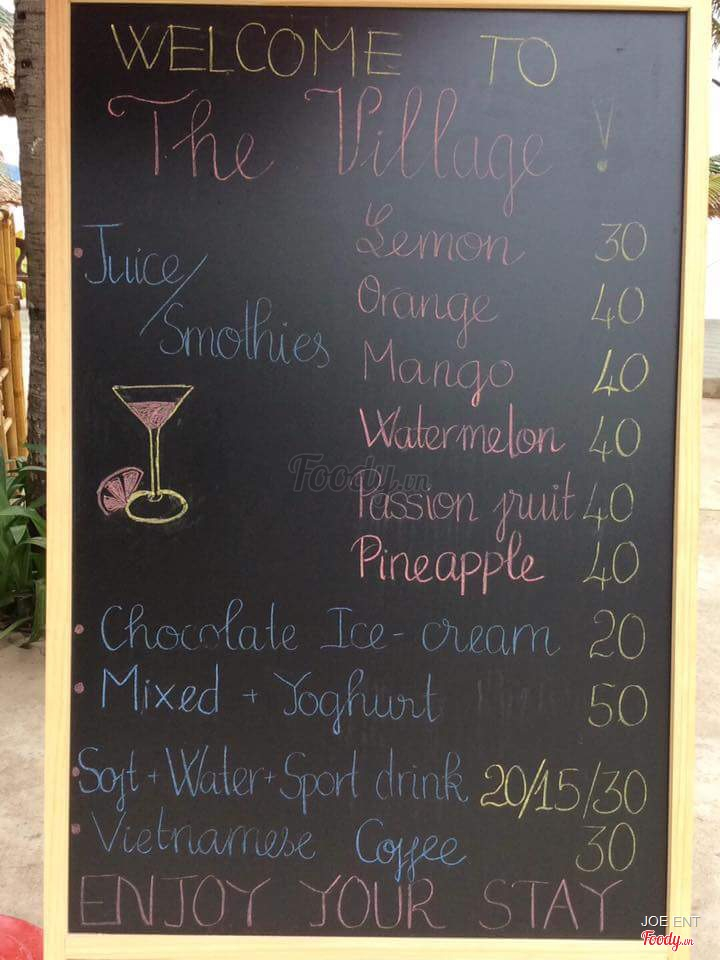 WELCOME TO
The Village !
Juice/
Smothies
Lemon 30
Orange 40
Mango 40
Watermelon 40
Passion fruit 40
Pineapple 40
Chocolate Ice-cream 20
Mixed + Yoghurt 50
Soft + Water + Sport drink 20/15/30
Vietnamese Coffee 30
ENJOY YOUR STAY
Foody.vn
JOE ENT
Foody.vn